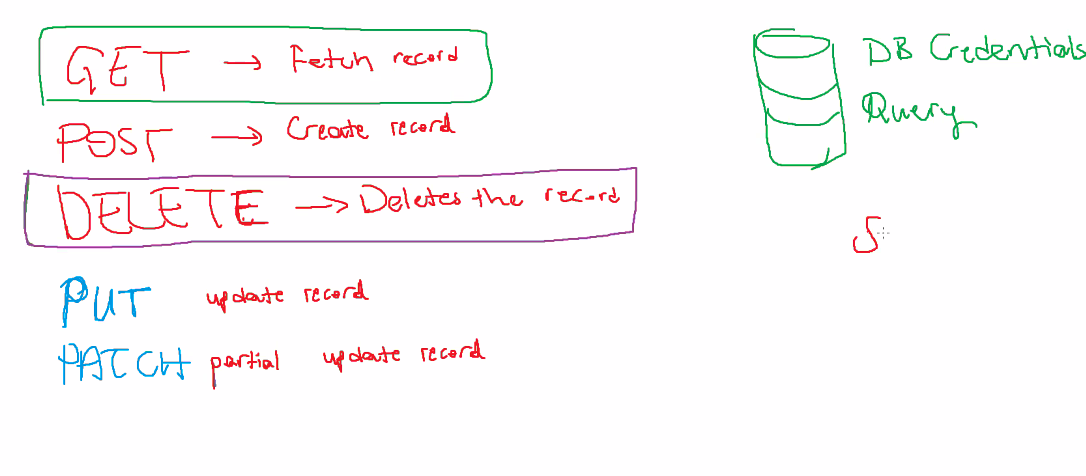 GET → Fetch record
POST → Create record
DELETE → Deletes the record
PUT update record
PATCH partial update record
DB Credentials
Query
S